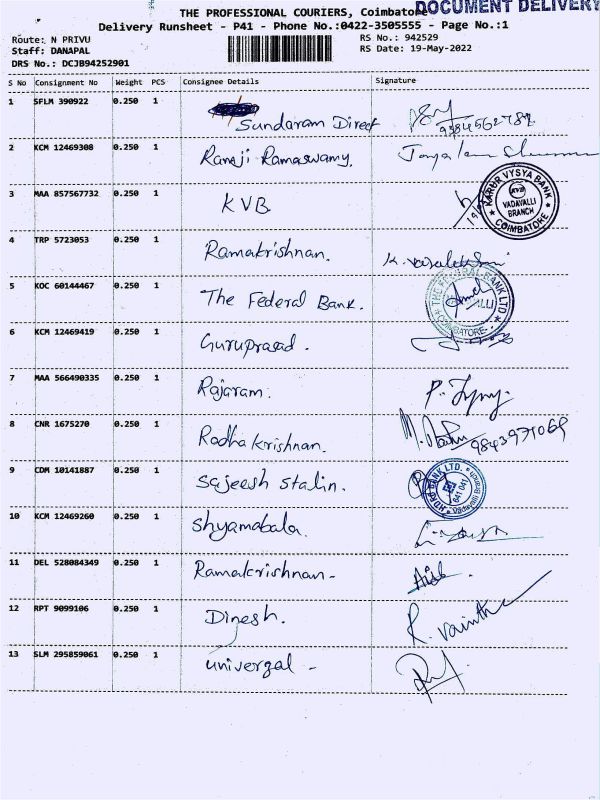 DOCUMENT DELIVERY
THE PROFESSIONAL COURIERS, Coimbatore
Delivery Runsheet - P41 - Phone No.:0422-3505555 - Page No.:1
Route: N PRIVU RS No.: 942529
Staff: DANAPAL RS Date: 19-May-2022
DRS No.: DCJB94252901
S No Consignment No Weight PCS Consignee Details Signature
1 SFLM 390922 0.250 1 Sundaram Direct
2 KCM 12469308 0.250 1 Ramaji Ramaswamy.
3 MAA 857567732 0.250 1 KVB
KARUR VYSYA BANK
KVB
VADAVALLI
BRANCH
COIMBATORE
4 TRP 5723053 0.250 1 Ramakrishnan.
5 KOC 60144467 0.250 1 The Federal Bank.
THE FEDERAL BANK LTD
6 KCM 12469419 0.250 1 Guruprasad.
7 MAA 566490335 0.250 1 Rajaram.
8 CNR 1675270 0.250 1 Radhakrishnan. 9843971069
9 CDM 10141887 0.250 1 Sajeesh Stalin.
HDFC BANK LTD.
641 041
10 KCM 12469260 0.250 1 Shyamabala.
11 DEL 528084349 0.250 1 Ramakrishnan-
12 RPT 9099106 0.250 1 Dinesh.
13 SLM 295859061 0.250 1 Univergal -